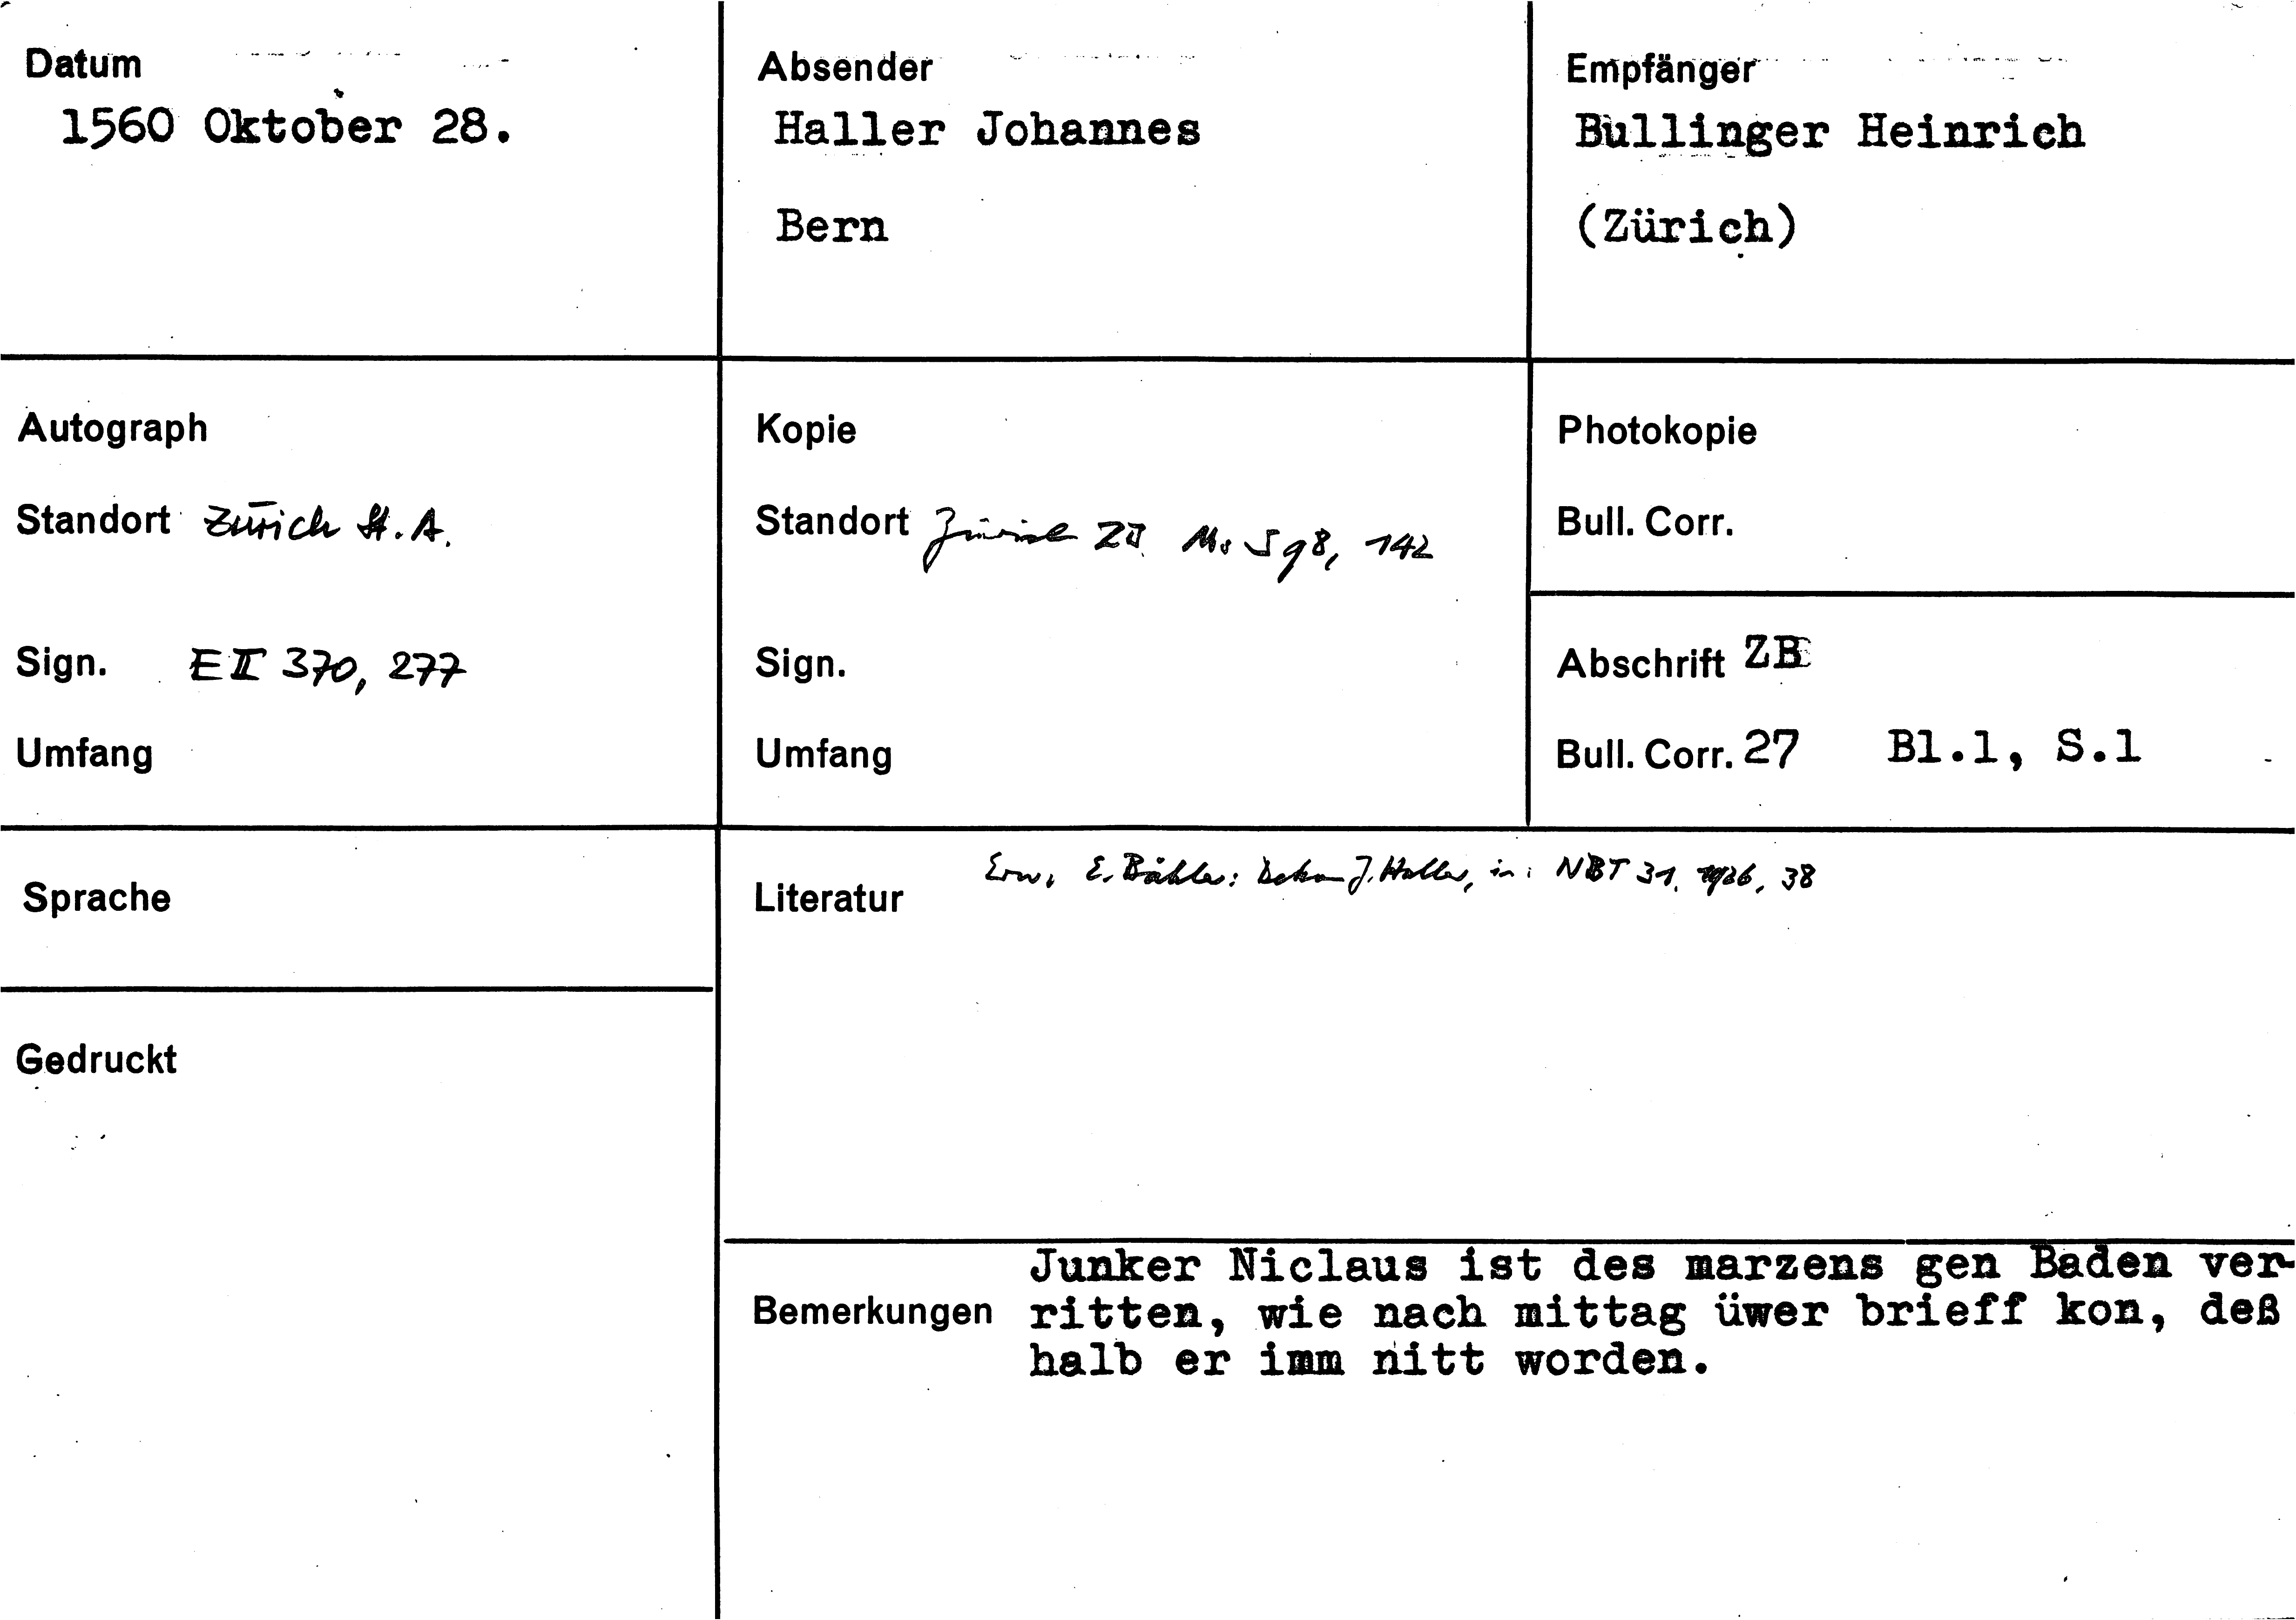 Datum
1560 Oktober 28.
Absender
Haller Johannes
Bern
Empfänger
Bullinger Heinrich
(Zürich)
Autograph
Standort Zürich St. A.
Sign. E II 370, 277
Umfang
Kopie
Standort Zürich ZB Ms S 98, 142
Sign.
Umfang
Photokopie
Bull. Corr.
Abschrift ZB
Bull. Corr. 27 Bl.1, S.1
Sprache
Gedruckt
Literatur
Erw. E. Bähler: Dekan J. Haller, in: NBT 31, 1926, 38
Bemerkungen
Junker Niclaus ist des marzens gen Baden ver-
ritten, wie nach mittag üwer brieff kon, deß
halb er imm nitt worden.